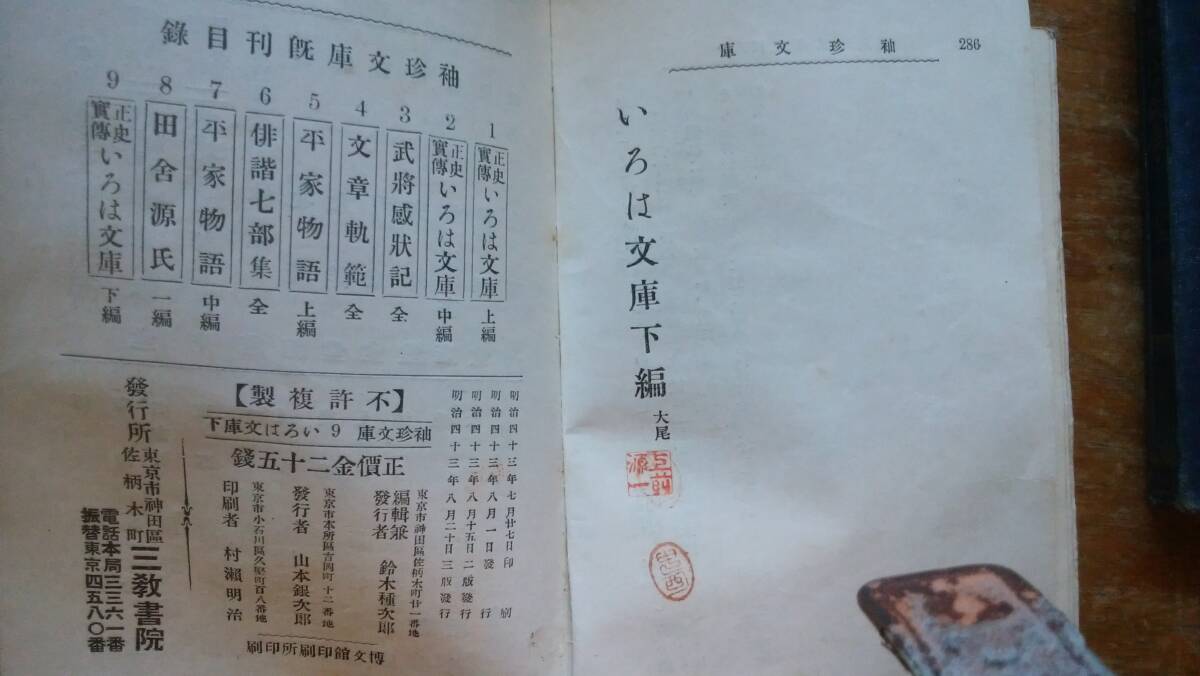 286
袖珍文庫
いろは文庫下編 大尾
袖珍文庫既刊目錄
1 正史實傳いろは文庫 上編
2 正史實傳いろは文庫 中編
3 武將感狀記 全
4 文章軌範 全
5 平家物語 上編
6 俳諧七部集 全
7 平家物語 中編
8 田舍源氏 一編
9 正史實傳いろは文庫 下編
明治四十三年七月廿七日印刷
明治四十三年八月一日發行
明治四十三年八月十五日二版發行
明治四十三年八月二十日三版發行
【不許複製】
袖珍文庫 9 いろは文庫下
正價金二十五錢
東京市神田區佐柄木町廿一番地
編輯兼發行者 鈴木種次郎
東京市本所區吉岡町十二番地
發行者 山本銀次郎
東京市小石川區久堅町百八番地
印刷者 村瀨明治
博文館印刷所印刷
發行所
東京市神田區佐柄木町
三教書院
電話本局三三六一番
振替東京四五八〇番